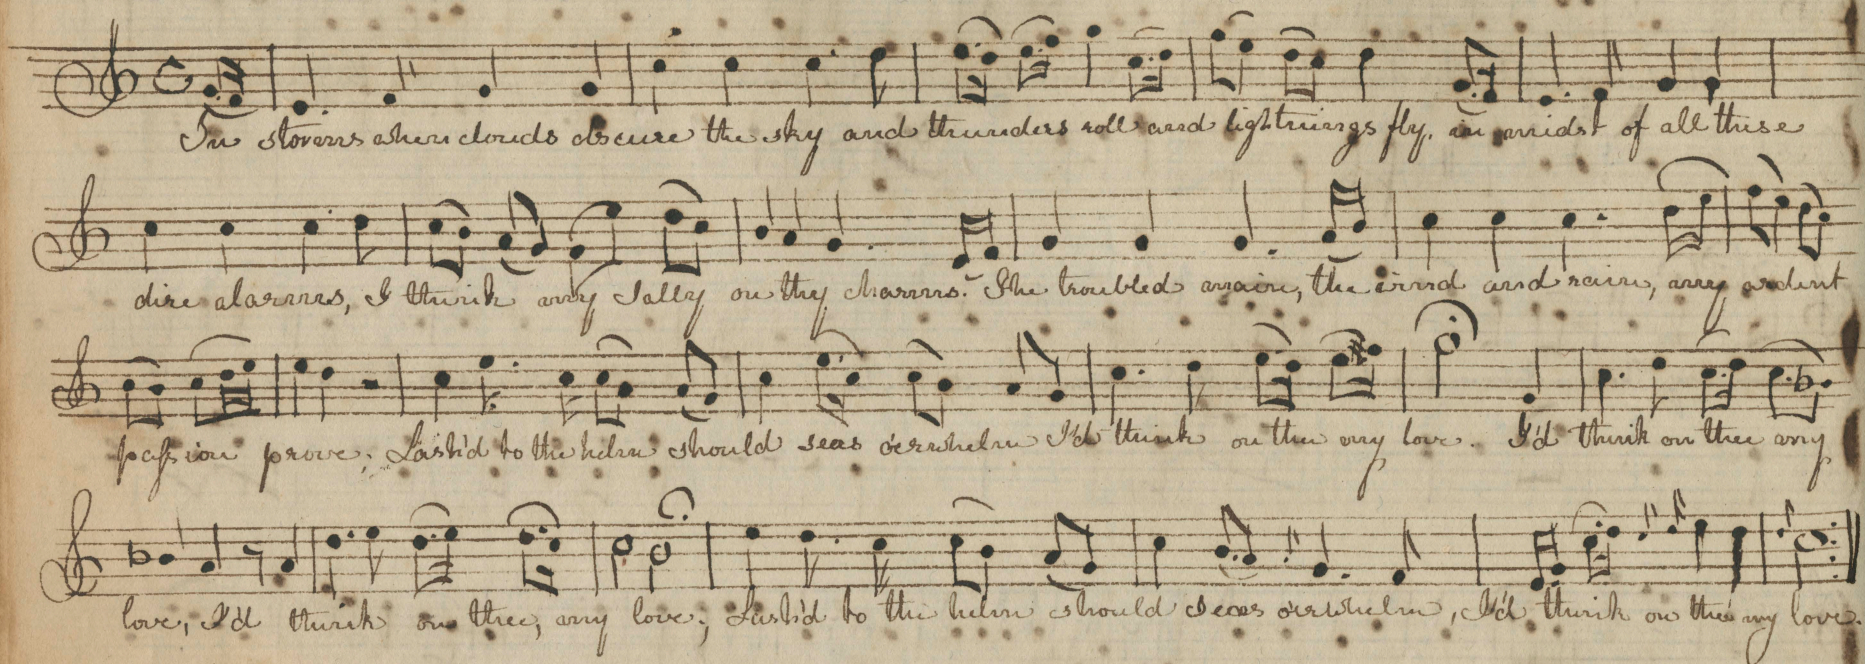 In storms when clouds obscure the sky and thunders roll and lightnings fly. in midst of all these
dire alarms, I think my Sally on thy charms. The troubled main, the wind and rain, my ardent
passion prove; Lash'd to the helm should seas o'erwhelm I'd think on thee my love. I'd think on thee my
love, I'd think on thee, my love; Lash'd to the helm should Seas o'erwhelm, I'd think on thee my love.